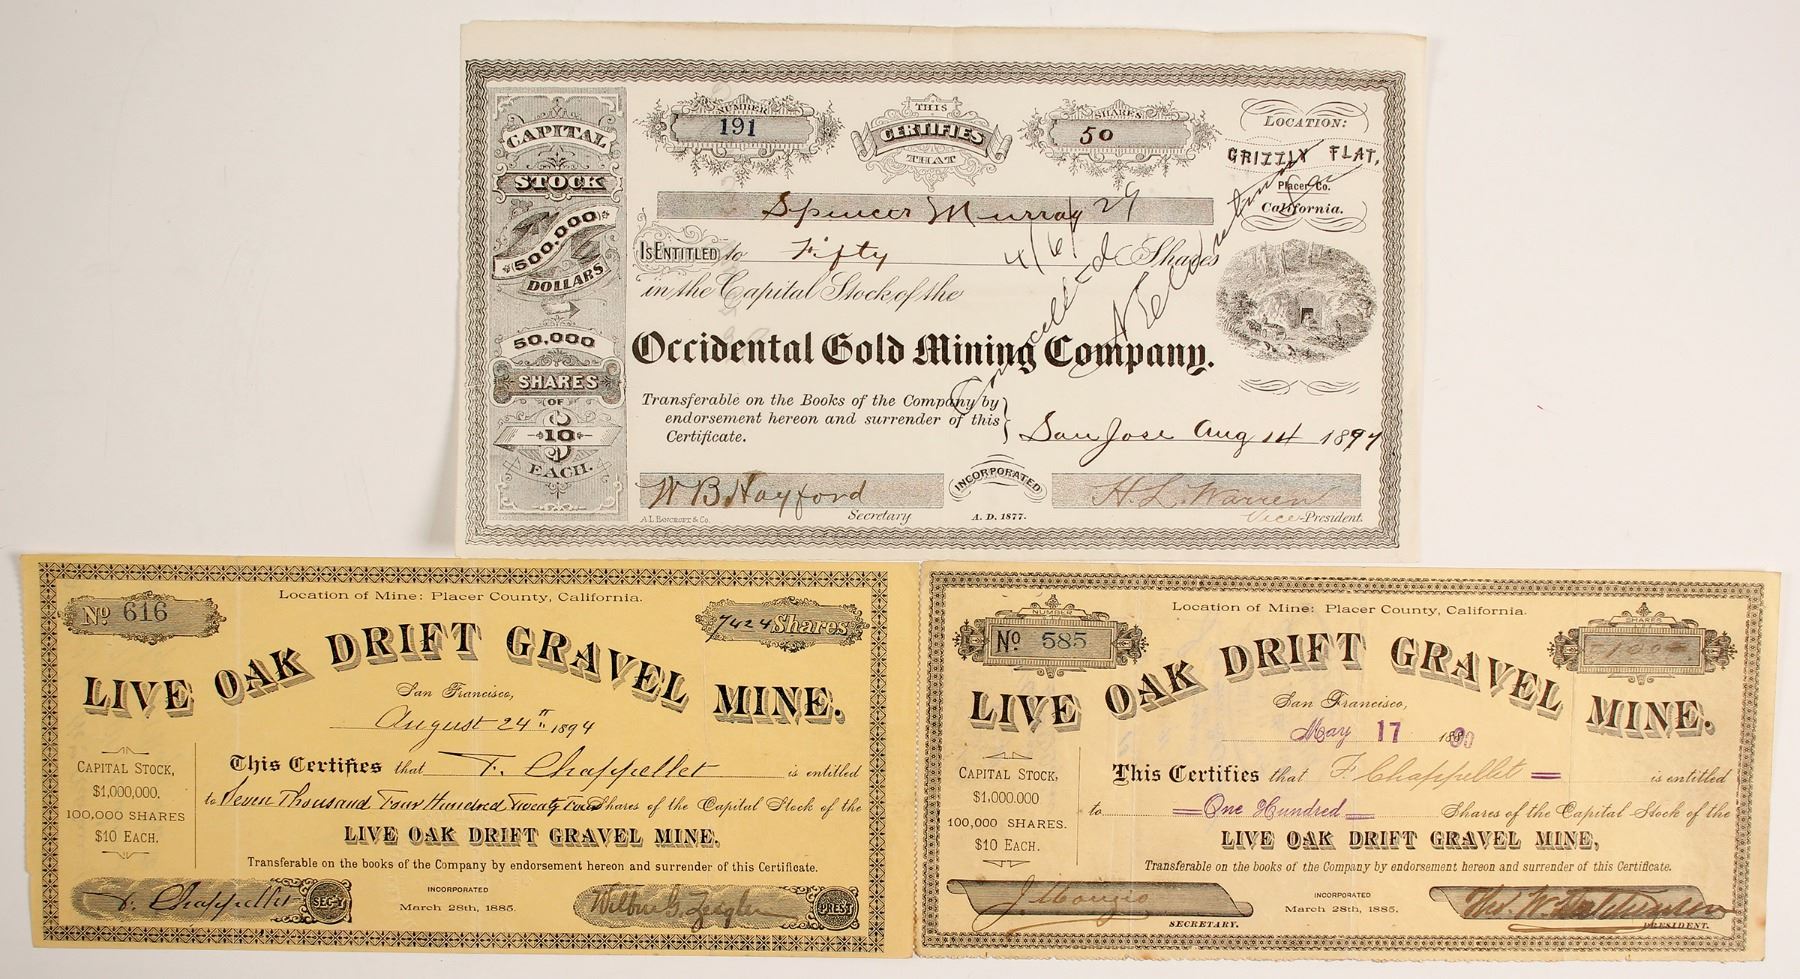 CAPITAL
STOCK
$500,000
DOLLARS
50,000
SHARES
OF
$10
EACH.
NUMBER
191
THIS
CERTIFIES
THAT
SHARES
50
LOCATION:
GRIZZLY FLAT,
Placer Co.
California.
Spencer Murray
Is ENTITLED to Fifty Shares
in the Capital Stock of the
Occidental Gold Mining Company.
Cancelled
Transferable on the Books of the Company by
endorsement hereon and surrender of this
Certificate.
San Jose Aug 14 1897
W B Hayford
Secretary
INCORPORATED
A. D. 1877.
H. L. Warren
Vice-President.
A.L. BANCROFT & CO.
Location of Mine: Placer County, California.
No 616
7424 Shares
LIVE OAK DRIFT GRAVEL MINE.
San Francisco,
August 24th 1894
CAPITAL STOCK,
$1,000,000,
100,000 SHARES
$10 EACH.
This Certifies that F. Chappellet is entitled
to Seven Thousand Four Hundred Twenty Four Shares of the Capital Stock of the
LIVE OAK DRIFT GRAVEL MINE.
Transferable on the books of the Company by endorsement hereon and surrender of this Certificate.
F. Chappellet SEC'Y
INCORPORATED
March 28th, 1885.
Wilbur G. Zeigler PREST
Location of Mine: Placer County, California.
NUMBER
No 585
SHARES
LIVE OAK DRIFT GRAVEL MINE.
San Francisco,
May 17 1890
CAPITAL STOCK,
$1.000.000
100,000 SHARES.
$10 EACH.
This Certifies that F. Chappellet is entitled
to One Hundred Shares of the Capital Stock of the
LIVE OAK DRIFT GRAVEL MINE,
Transferable on the books of the Company by endorsement hereon and surrender of this Certificate.
SECRETARY.
INCORPORATED
March 28th, 1885.
PRESIDENT.